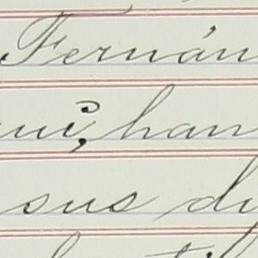 Fernán
uí, han
sus di